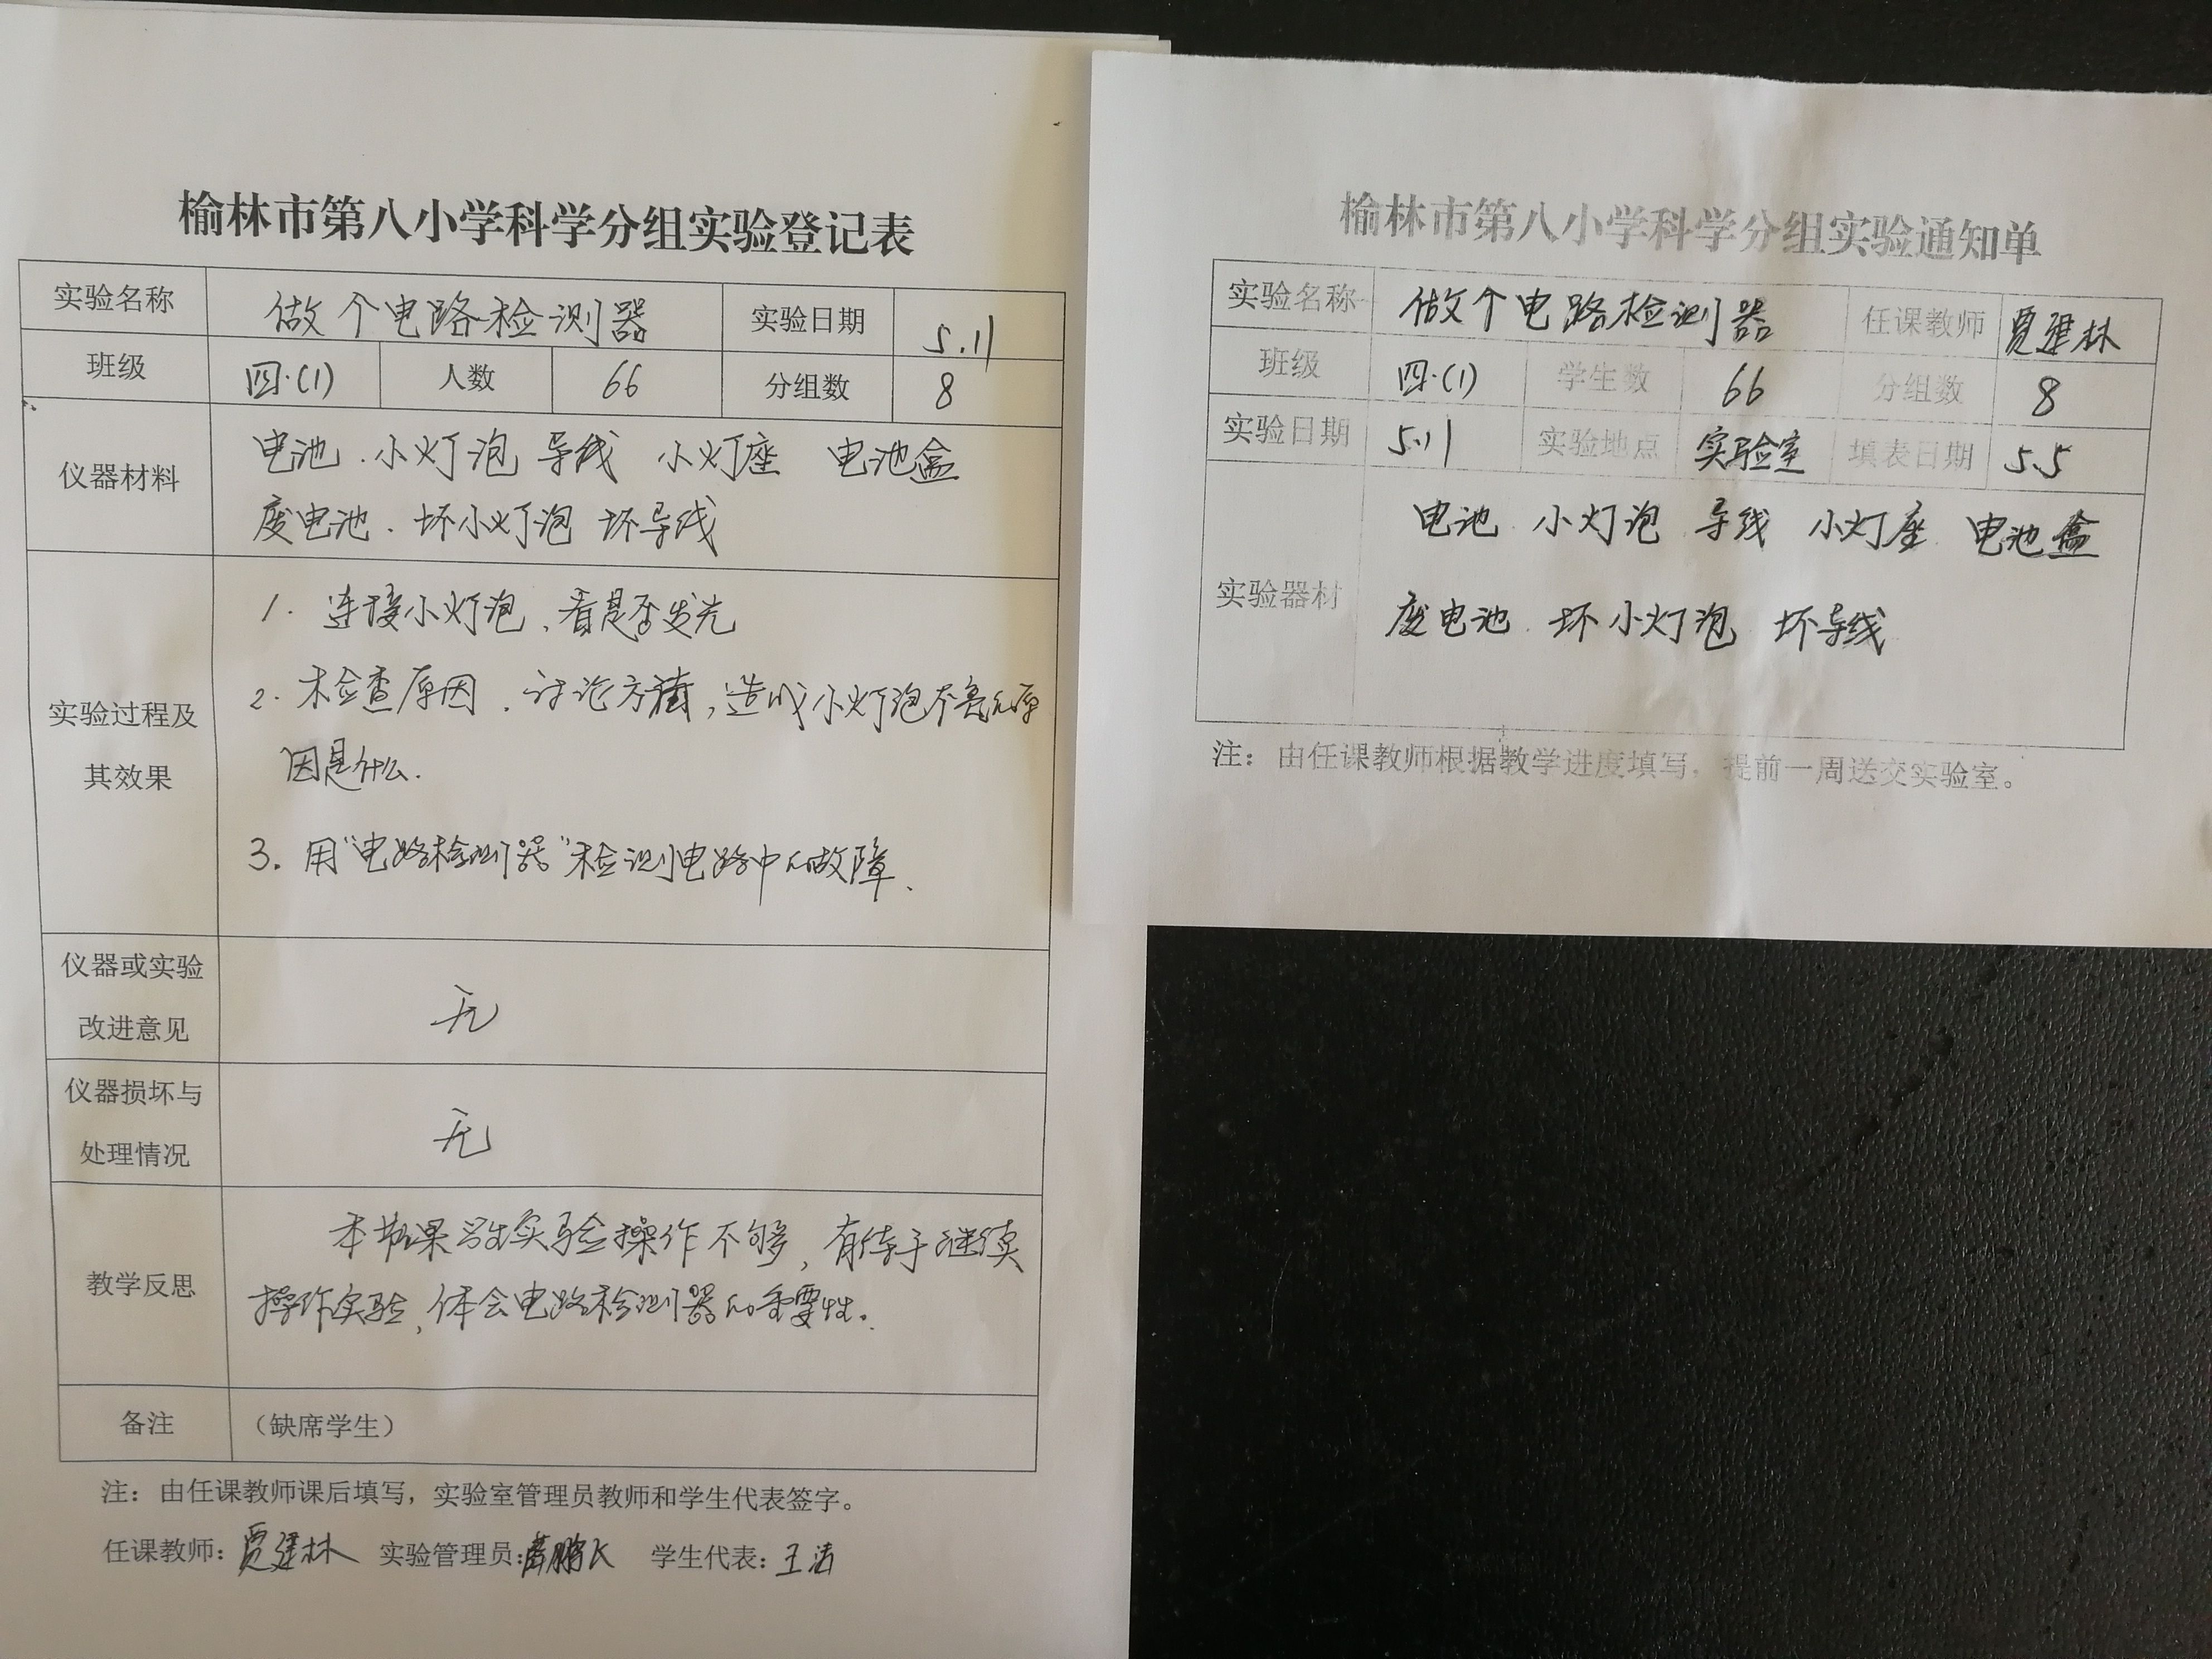 榆林市第八小学科学分组实验登记表
实验名称 做个电路检测器 实验日期 5.11
班级 四.(1) 人数 66 分组数 8
仪器材料
电池.小灯泡 导线 小灯座 电池盒
废电池.坏小灯泡 坏导线
实验过程及
其效果
1. 连接小灯泡,看是否发光
2. 检查原因,讨论方案,造成小灯泡不亮的原
因是什么.
3. 用“电路检测器”检测电路中的故障.
仪器或实验
改进意见
无
仪器损坏与
处理情况
无
教学反思
本节课学生实验操作不够,有待于继续
操作实验,体会电路检测器的重要性。
备注 (缺席学生)
注：由任课教师课后填写，实验室管理员教师和学生代表签字。
任课教师：贾建林 实验管理员： 学生代表：王洁
榆林市第八小学科学分组实验通知单
实验名称 做个电路检测器 任课教师 贾建林
班级 四.(1) 学生数 66 分组数 8
实验日期 5.11 实验地点 实验室 填表日期 5.5
实验器材
电池 小灯泡 导线 小灯座 电池盒
废电池.坏小灯泡 坏导线
注：由任课教师根据教学进度填写，提前一周送交实验室。